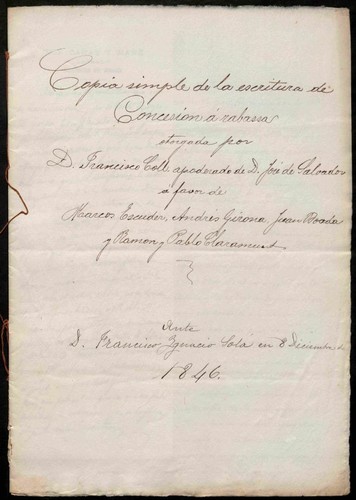 Copia simple de la escritura de
Concesion á rabassa
otorgada por
D. Francisco Coll apoderado de D. José de Salvador
a favor de
Marcos Escuder, Andres Girona, Juan Boada
y Ramon y Pablo Claramunt
Ante
D. Francisco Ignacio Solá en 8 Diciembre de
1846.